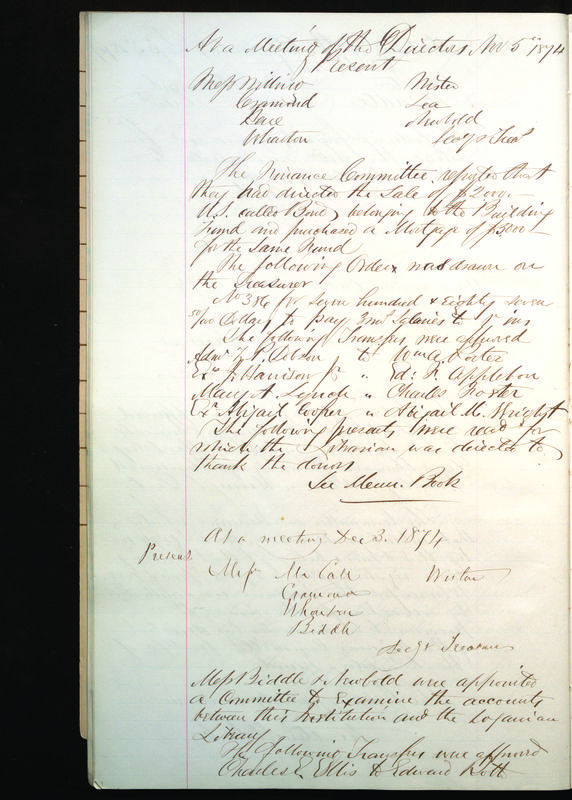 At a Meeting of the Directors Nov 5th 1874
Present
Messrs Wister
Cramond Lea
Newbold
Wharton Secy & Treasr
The Finance Committee reported that
they had directed the Sale of $2000.
U.S. called Bonds belonging to the Building
Fund and purchased a Mortgage of $5000
for the Same Fund
The following Order was drawn on
the Treasurer
No 386 for Seven hundred & Eighty Seven
50/100 Dollars to pay Salaries to
The following Transfers were approved
Admr P. Dobson to Wm A. Porter
Exr J. Harrison Jr " Ed: F. Appleton
Margt Lynch " Charles Foster
Exr Abigail Cooper " Abigail M. Wright
The following presents were read for
which the Librarian was directed to
thank the donors
See Mem. Book
At a meeting Dec 3. 1874
Present
Messrs McCall Wister
Cramond
Wharton
Biddle
Secy & Treasurer
Messrs Biddle & Newbold were appointed
a Committee to Examine the accounts
between this Institution and the Loganian
Library
The following Transfers were approved
Charles Ellis to Edward Rott